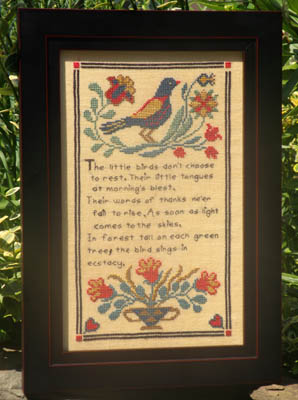 The little birds don't choose
to rest. Their little tongues
at morning's blest.
Their words of thanks ne'er
fail to rise, As soon as light
comes to the skies.
In forest tall on each green
tree, the bird sings in
ecstacy.